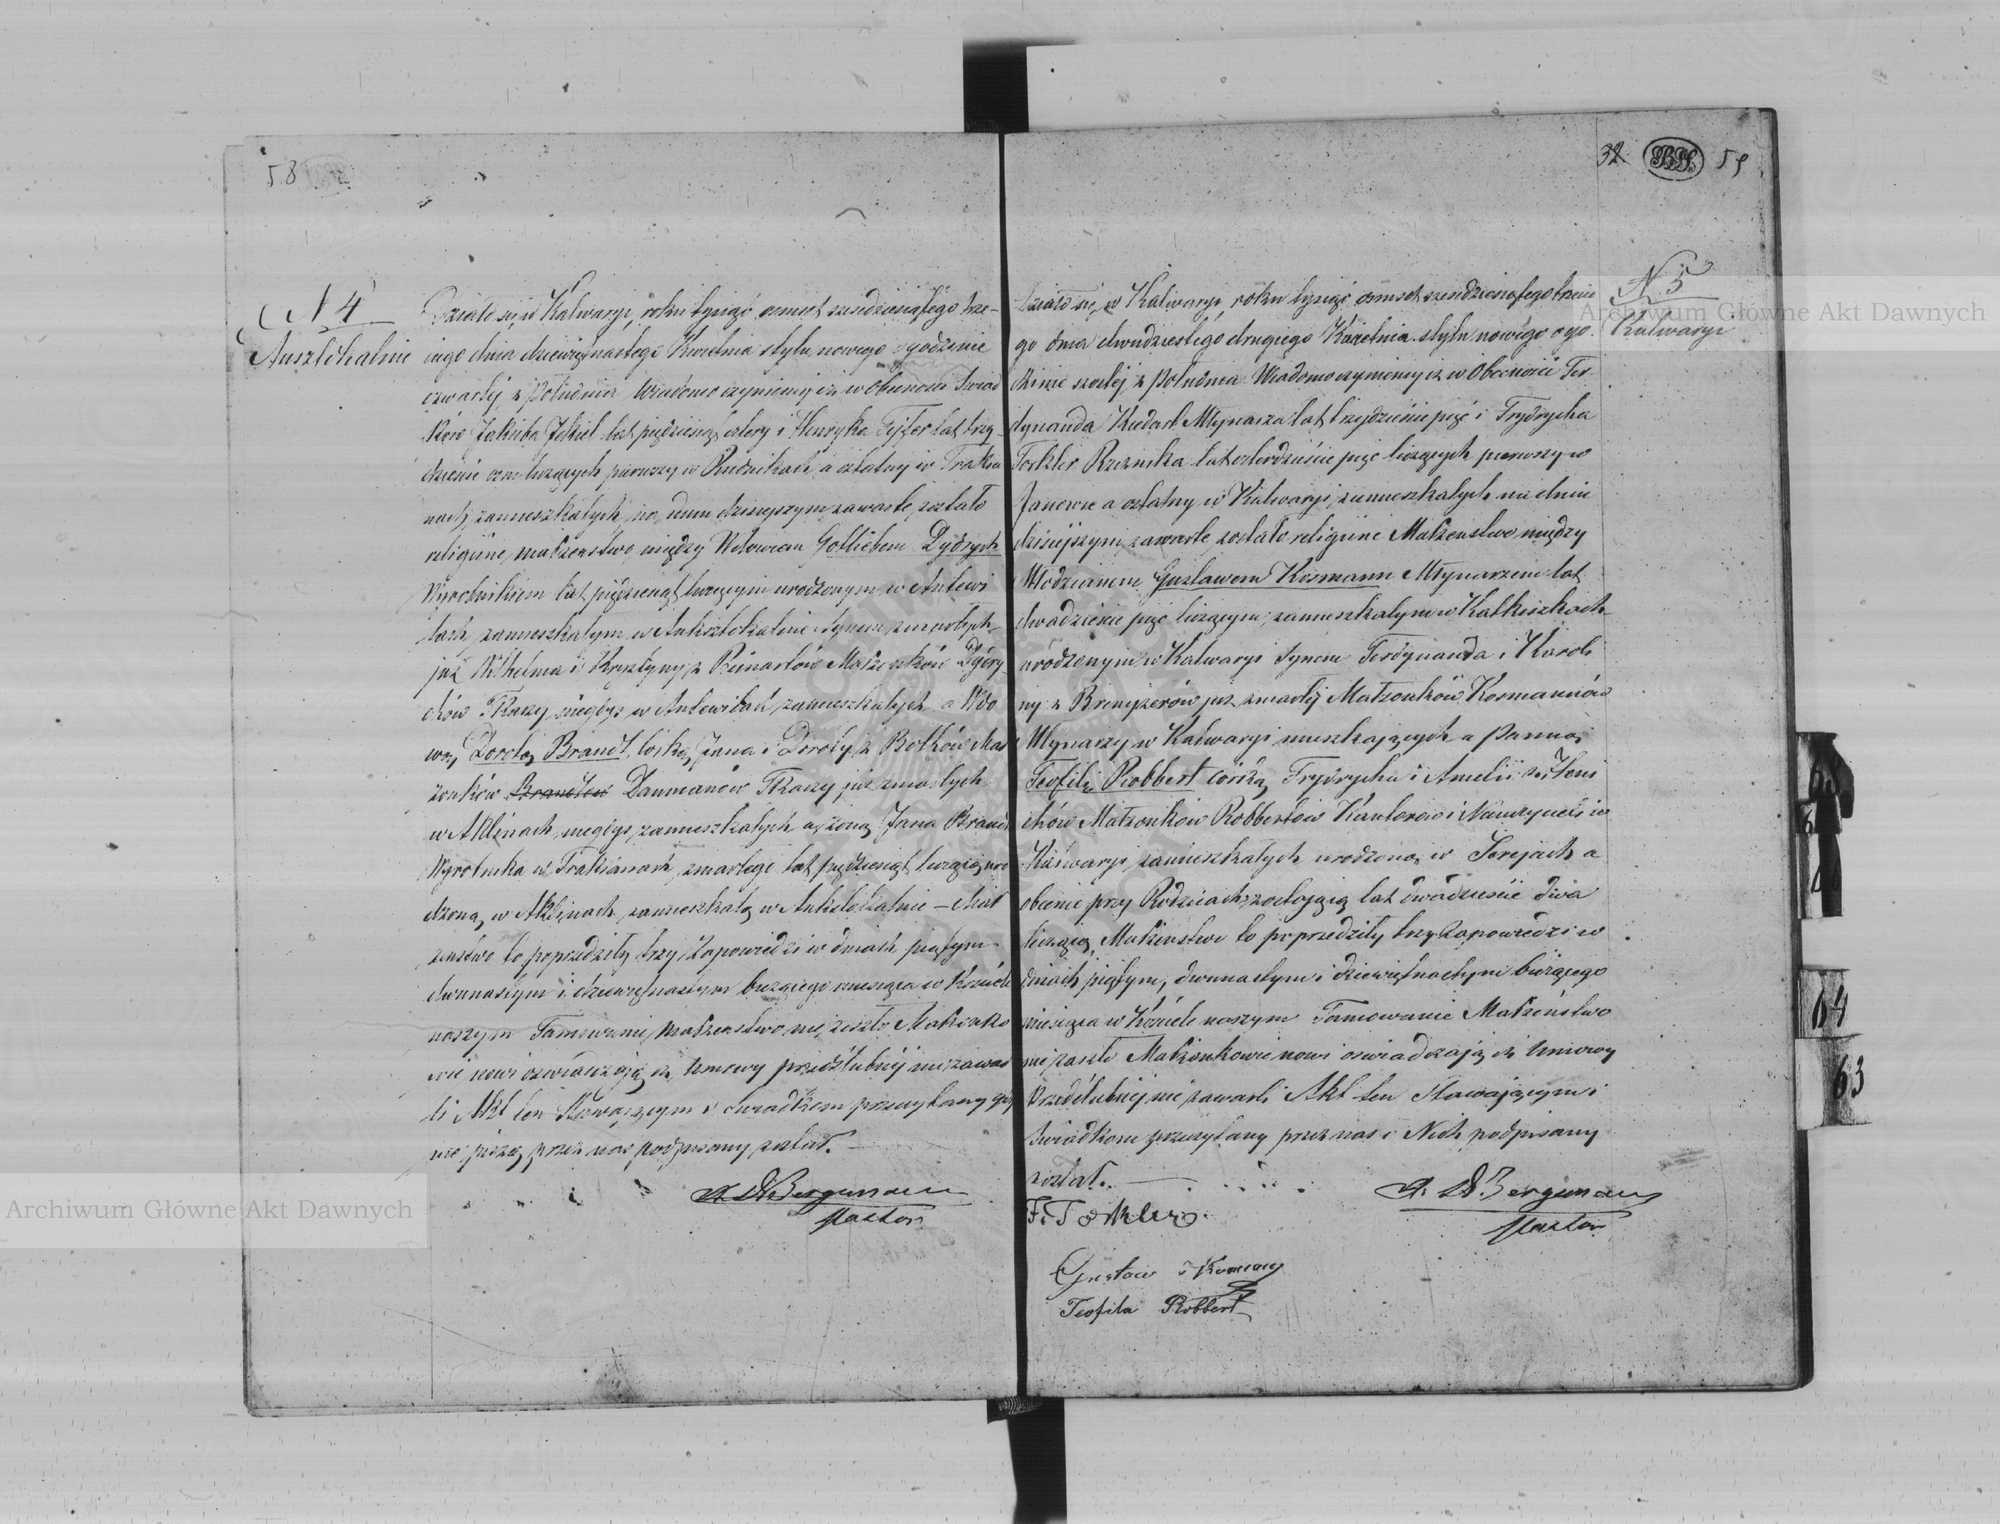 58
N 4
Auksztokalnie
Działo się w Kalwaryi, roku tysiąc osmset sześdziesiątego trze-
ciego dnia dziewiętnastego Kwietnia stylu nowego o godzinie
czwartej z południa Wiadomo czyniemy iż w Obecności Świad
ków Jakuba Jekiel lat pięćdziesiąt cztery i Henryka Fejfer lat trzy-
dzieści osm liczących pierwszy w Rudnikach a ostatny w Trakia
nach zamieszkałych, na dniu dzisiejszym zawarte zostało
religijne małżeństwo między Wdowcem Gottliebem Dydrych
Wyrobnikiem lat pięćdziesiąt liczącym urodzonym w Antewi
łach, zamieszkałym w Auksztokalnie Synem zmarłych
już Wilhelma i Krystyny z Reinartów Małżonków Dydry-
chów Tkaczy niegdyś w Antewiłach zamieszkałych a Wdo
wą Dorotą Brandt, córką Jana i Doroty z Botków Mał
żonków Brandtów Daumanów Tkaczy już zmarłych
w Aklinach niegdyś zamieszkałych a żoną Jana Brandt
Wyrobnika w Trakianach zmarłego lat pięćdziesiąt liczącą uro
dzoną w Aklinach zamieszkałą w Auksztokalnie – Małż
eństwo to poprzedziły trzy Zapowiedzi w dniach piątym
dwunastym i dziewiętnastym bieżącego miesiąca w Kościele
naszym Tamowanie małżeństwo nie zaszło Małżonko
wie nowi oświadczają iż Umowy przedślubnej nie zawar
li Akt ten Stawającym i Świadkom przeczytany gdy
nie piszą przez nas podpisany został.
A. W. Bergmann
Pastor
32 59
N 5
Kalwaryi
Działo się w Kalwaryi, roku tysiąc osmset sześdziesiątego trzecie
go dnia dwudziestego drugiego Kwietnia stylu nowego o go
dzinie szostej z południa Wiadomo czyniemy iż w Obecności Fer
dynanda Kudart Młynarza lat trzydzieście pięć i Frydrycha
Tokler Rzeznika lat czterdzieście pięć liczących pierwszy w
Janowie a ostatny w Kalwaryi zamieszkałych na dniu
dzisiejszym zawarte zostało religijne Małżenstwo między
Młodzianem Gustawem Kosmann Młynarzem lat
dwadzieście pięć liczącym, zamieszkałym w Kalkiszkach
urodzonym w Kalwaryi Synem Ferdynanda i Karoli
ny z Brenyzerów już zmarłej Małżonków Kosmannów
Młynarzy w Kalwaryi mieszkających a Panną
Teofilą Robbert córką Frydrycha i Amelii z Heni
chów Małżonków Robbertów Kantorów i Nauczycieli w
Kalwaryi zamieszkałych urodzoną w Serejach a
obecnie przy Rodzicach zostającą lat dwadzieście dwa
liczącą Małżeństwo to poprzedziły trzy Zapowiedzi w
dniach piątym, dwunastym i dziewiętnastym bieżącego
miesiąca w Kościele naszym Tamowanie Małżeństwo
nie zaszło Małżonkowie nowi oswiadczają iż Umowy
Przedślubnej nie zawarli Akt ten Stawającym i
Świadkom przeczytany przez nas i Nich podpisany
został.
A. W. Bergmann
Pastor
F. Tokler
Gustaw Kosmann
Teofila Robbert
64
63
Archiwum Główne Akt Dawnych
Archiwum Główne Akt Dawnych